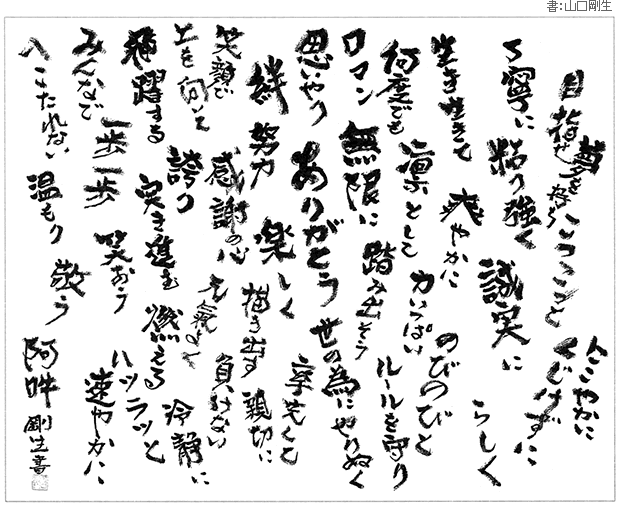 書:山口剛生
目指せ
夢を
こつこつと
にこやかに
くじけずに
丁寧に
粘り強く
誠実に
らしく
生き生きて
爽やかに
のびのびと
何度でも
凛として
力いっぱい
ルールを守り
ロマン
無限に
踏み出そう
世の為にやりぬく
思いやり
ありがとう
率先して
絆
努力
楽しく
描き出す
親切に
笑顔で
感謝の心
元気よく
負けない
上を向いて
誇り
冷静に
飛躍する
突き進む
燃える
ハツラツと
みんなで
一歩一歩
笑おう
速やかに
へこたれない
温もり
敬う
阿吽
剛生書